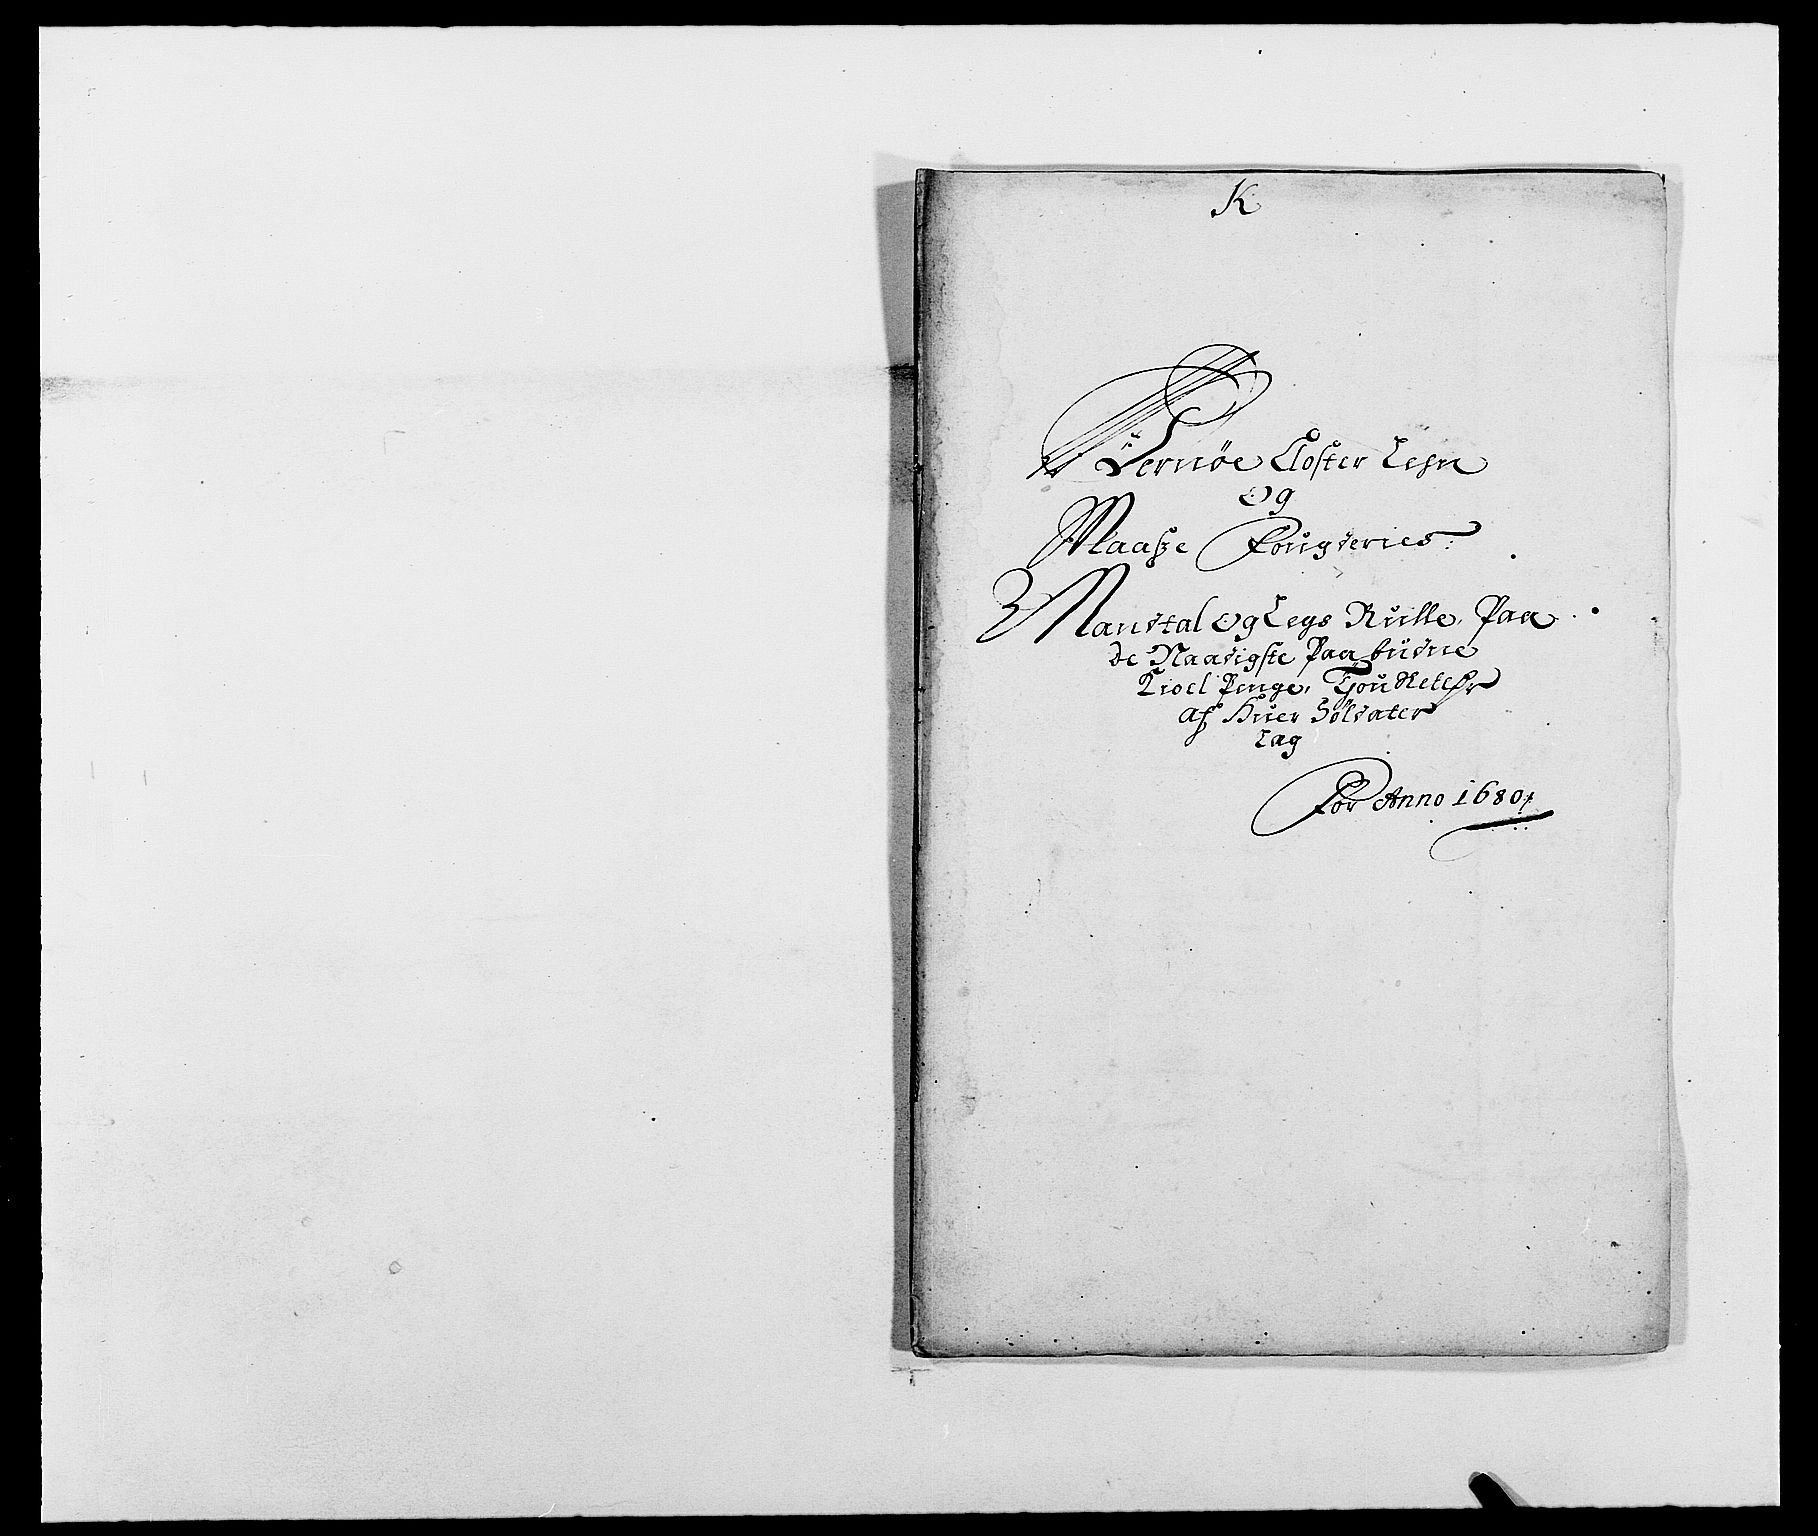 K
Wernöe Closter Lehn
Og
Maasze Fougderies:
Mandtal Og Legs Rulle, Paa
de Naadigste Paa budne
Kioel Penge,
af Huer Soldater
Lag
For Anno 1680